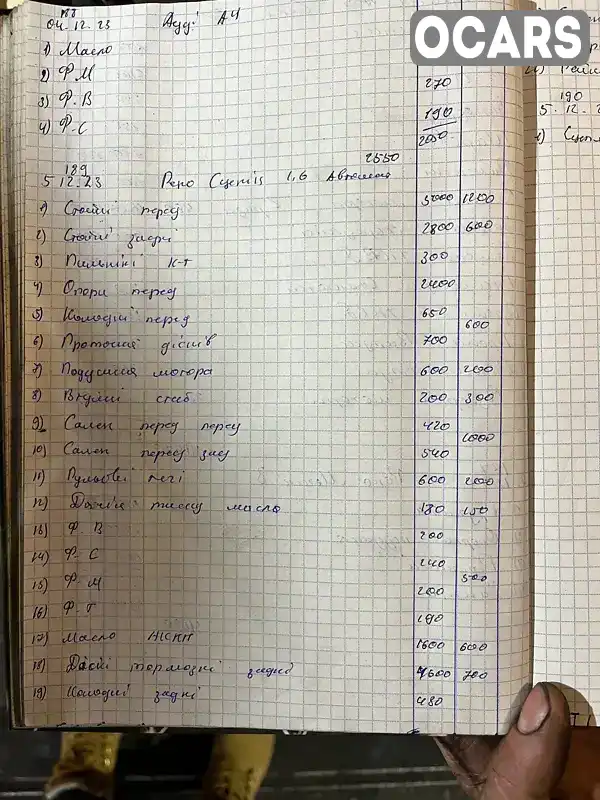 188
04.12.23 Ауді А4
OCARS
1) Масло
2) Ф М 270
3) Ф. В 190
4) Ф. С 2050
2550
189
5 12.23 Рено Сценік 1,6 Автомат
1) Стойкі перед 3000 1200
2) Стойкі задні 2800 600
3) Пильнікі к-т 300
4) Опори перед 2400
5) Колодкі перед 650
600
6) Проточка дісків 700
7) Подушка мотора 600 200
8) Втулкі стаб 200 300
9) Сален перед перед 420
1000
10) Сален перед зад 540
11) Рульові тягі 600 200
12) Датчік тиску масла 180 150
13) Ф. В 200
14) Ф. С 240
500
15) Ф М 200
16) Ф. Т 190
17) Масло АКПП 1600 600
18) Діскі тормозні задні 4600 700
19) Колодкі задні 480
190
5.12.2